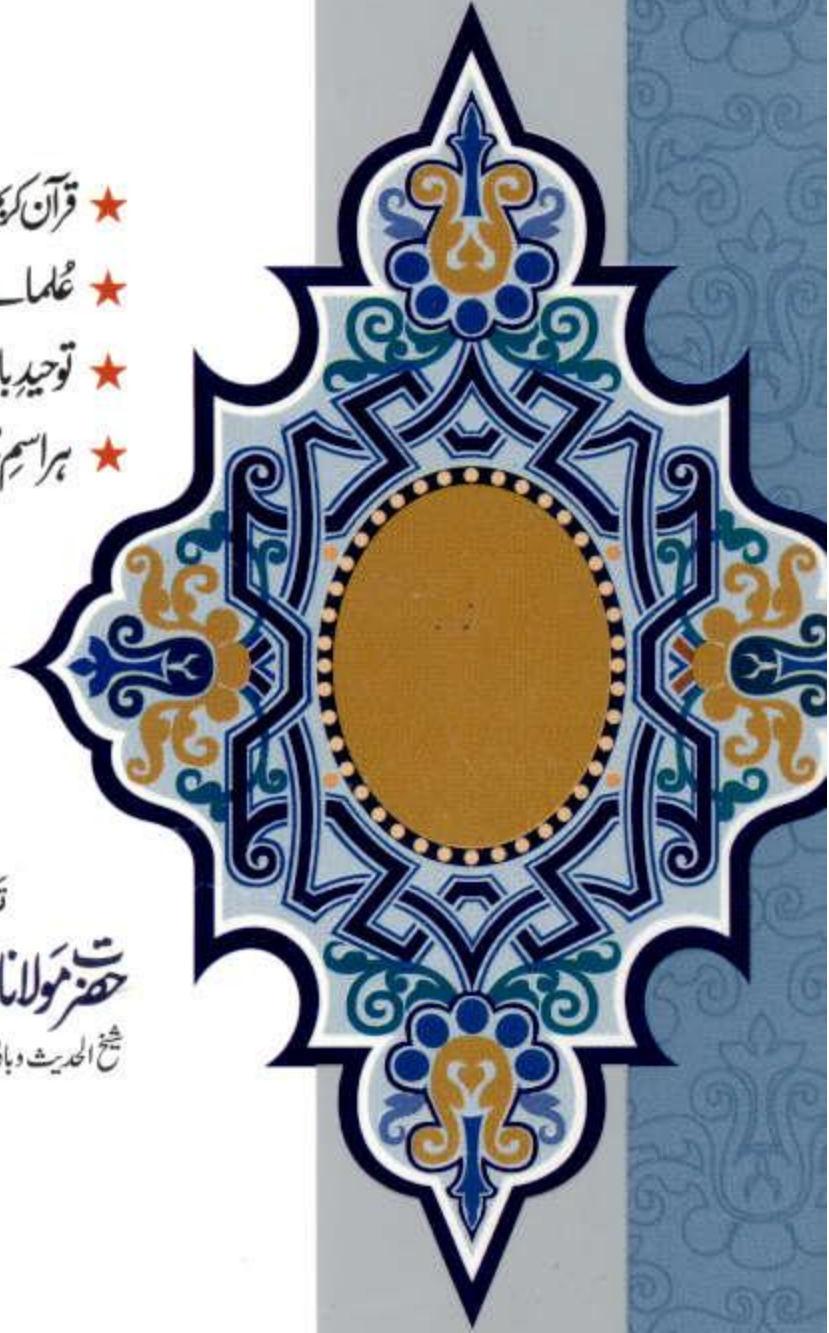 ★ قرآن کریم
★ عُلمائے
★ توحیدِ با
★ ہر اسمِ
حضرت مَولانا
شیخ الحدیث و بانی